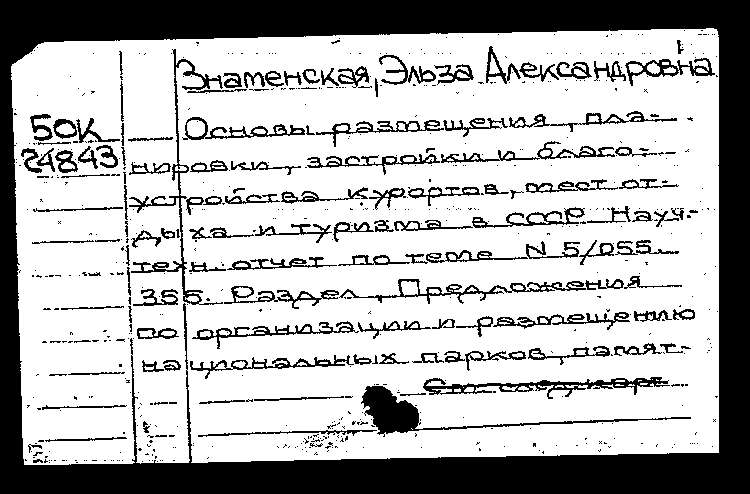 Знаменская, Эльза Александровна
50К
24843
Основы размещения, пла-
нировки, застройки и благо-
устройства курортов, мест от-
дыха и туризма в СССР Науч.-
техн. отчет по теме N 5/055.
355. Раздел, Предложения
по организации и размещению
национальных парков, памят-
См. след. карт.